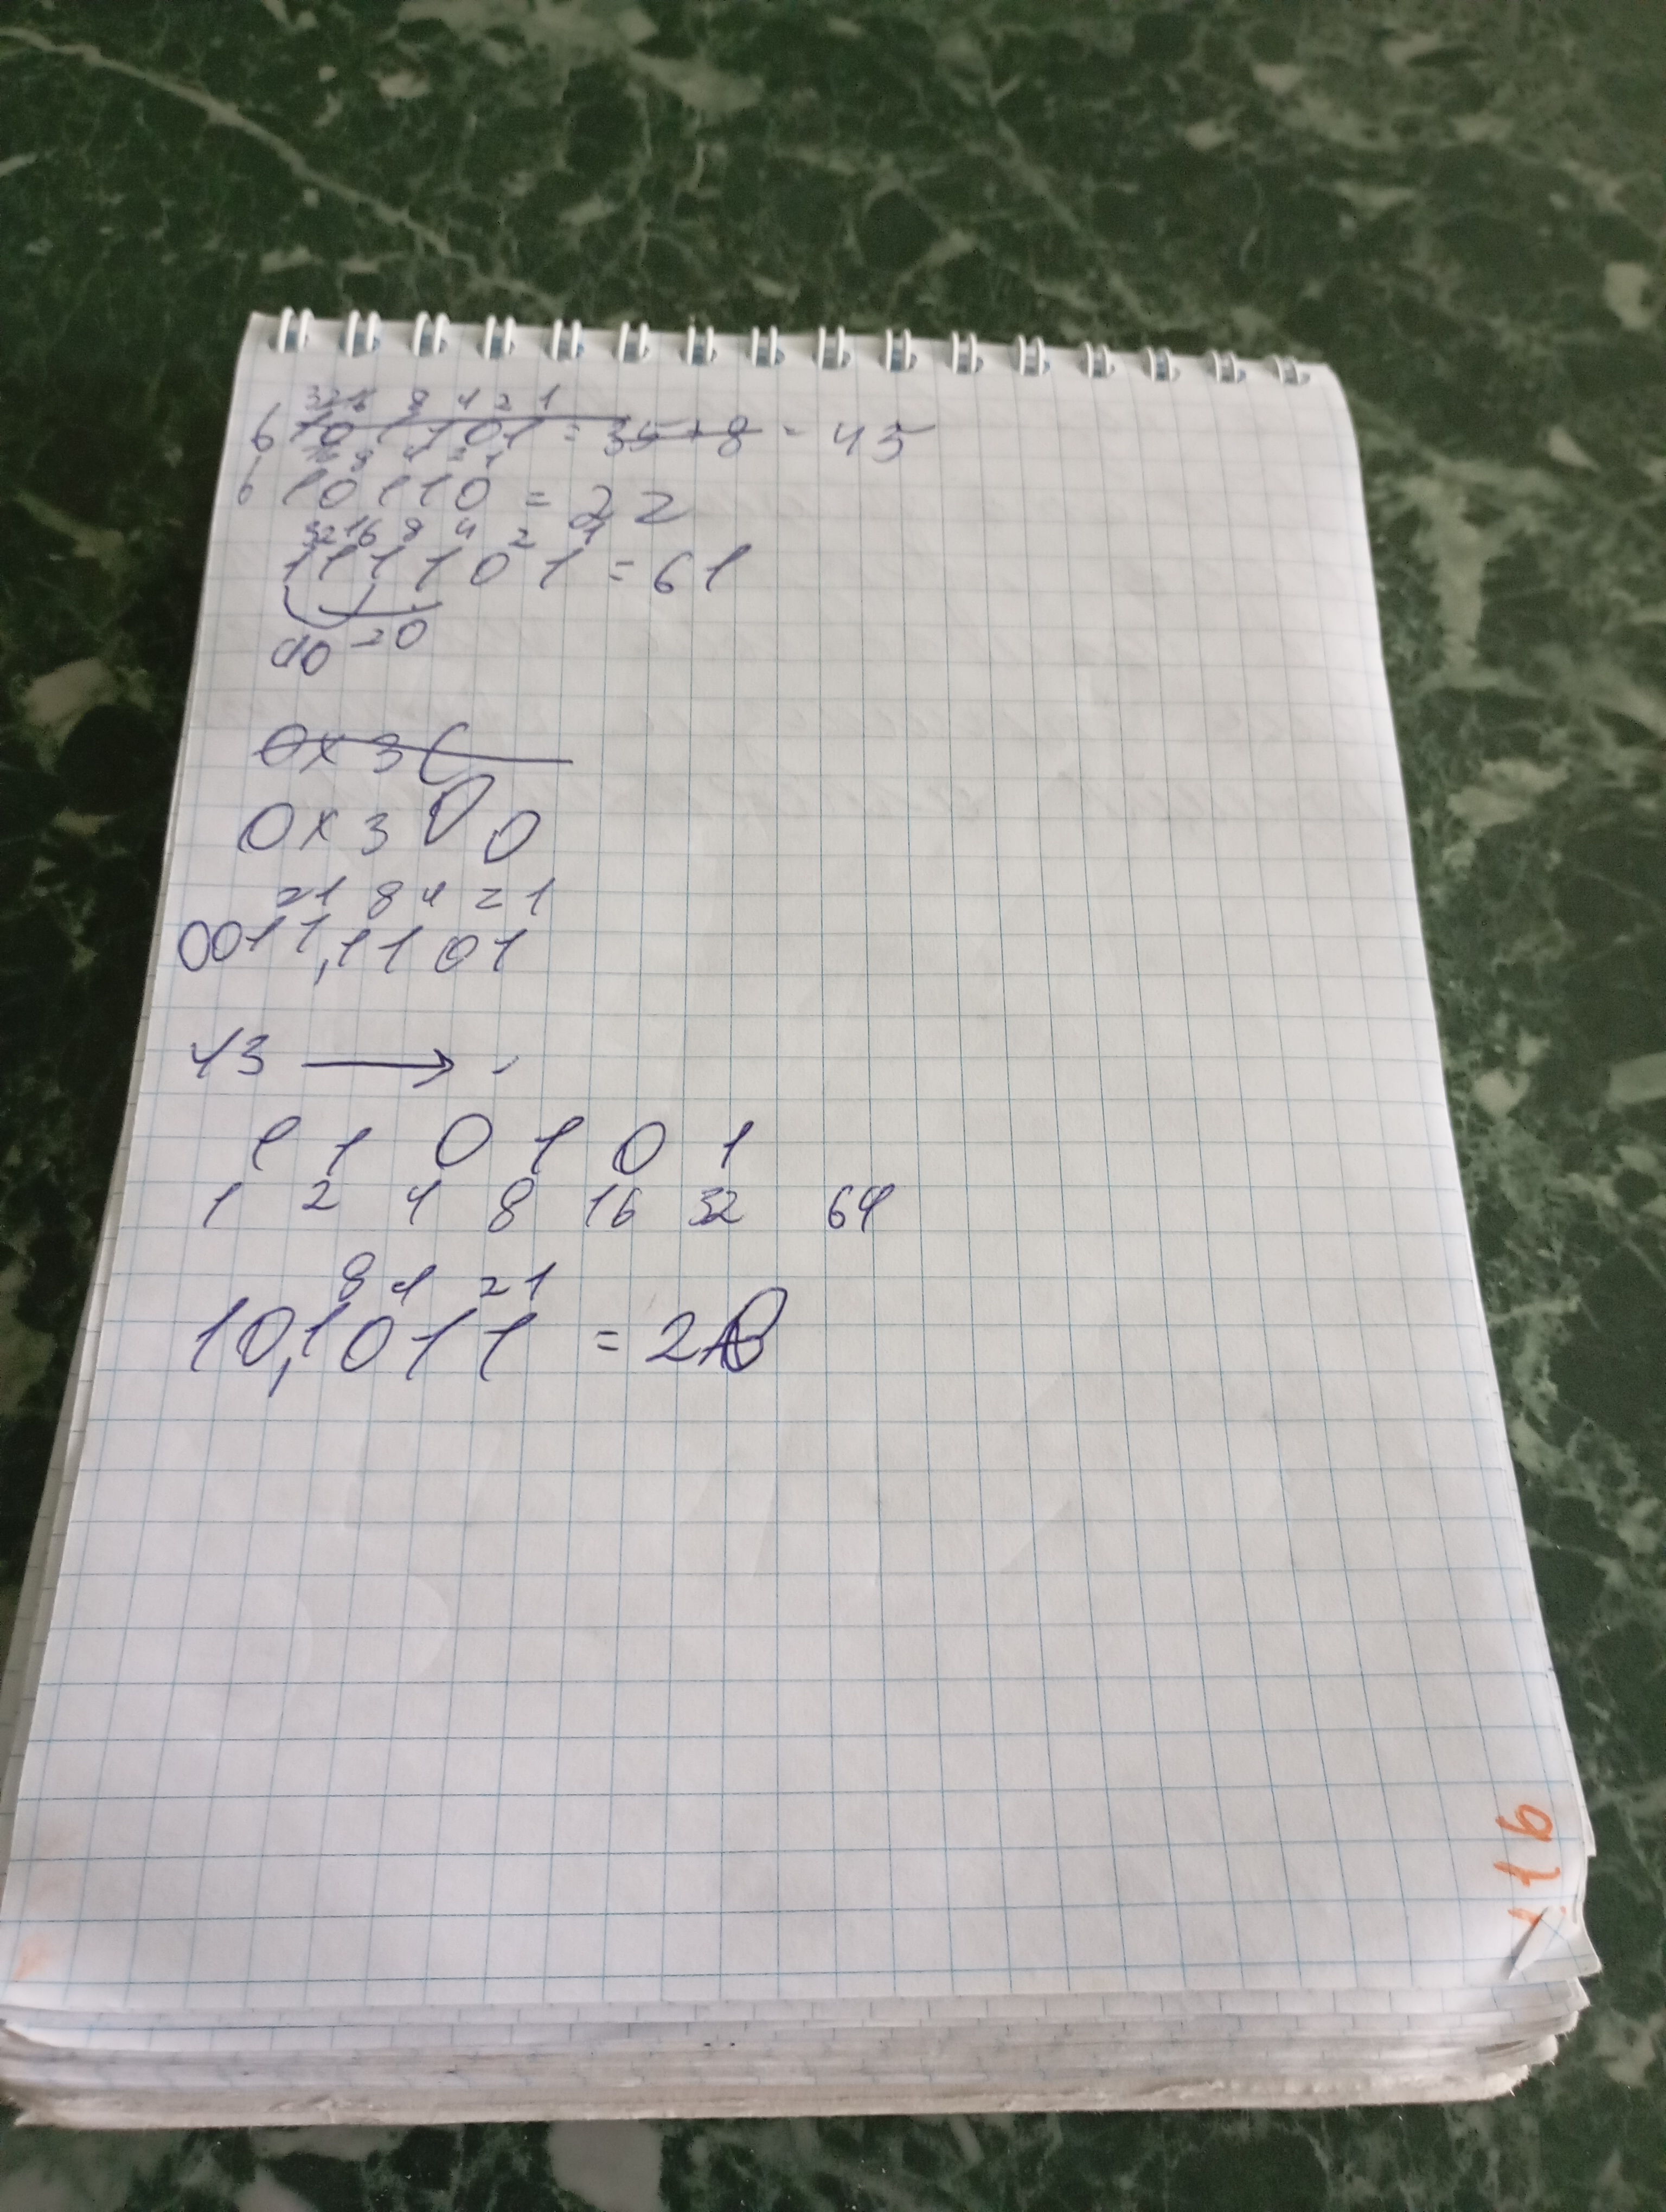 32 16 8 4 2 1
6 101101 = 35+8 = 45
16 8 4 2 1
6 10110 = 22
32 16 8 4 2 1
111101 = 61
40 20
0x3C
0x3D D
21 84 21
0011,1101
43 →
1 1 0 1 0 1
1 2 4 8 16 32 64
84 21
10,1011 = 2B
116